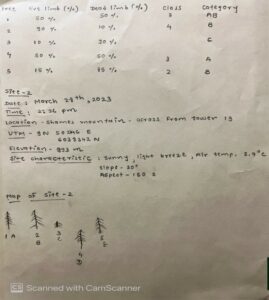 Tree Live limb (%) Dead limb (%) Class Category
1 50 % 50 % 3 AB
2 90 % 10 % 4 B
3 10 % 90 % C
4 50 % 50 % 3 A
5 15 % 85 % 2 B
Site - 2
Date : March 28th, 2023
Time : 22:26 pm
Location - Shames mountain - across from tower 13
UTM - 9N E
Elevation - 823 m
Site characteristic : Sunny, light breeze, Air temp. 3.9°C
Slope - 20°
Aspect - 150 S
Map of site - 2
1 A
2
B
3
C
4
D
5
E
CS Scanned with CamScanner